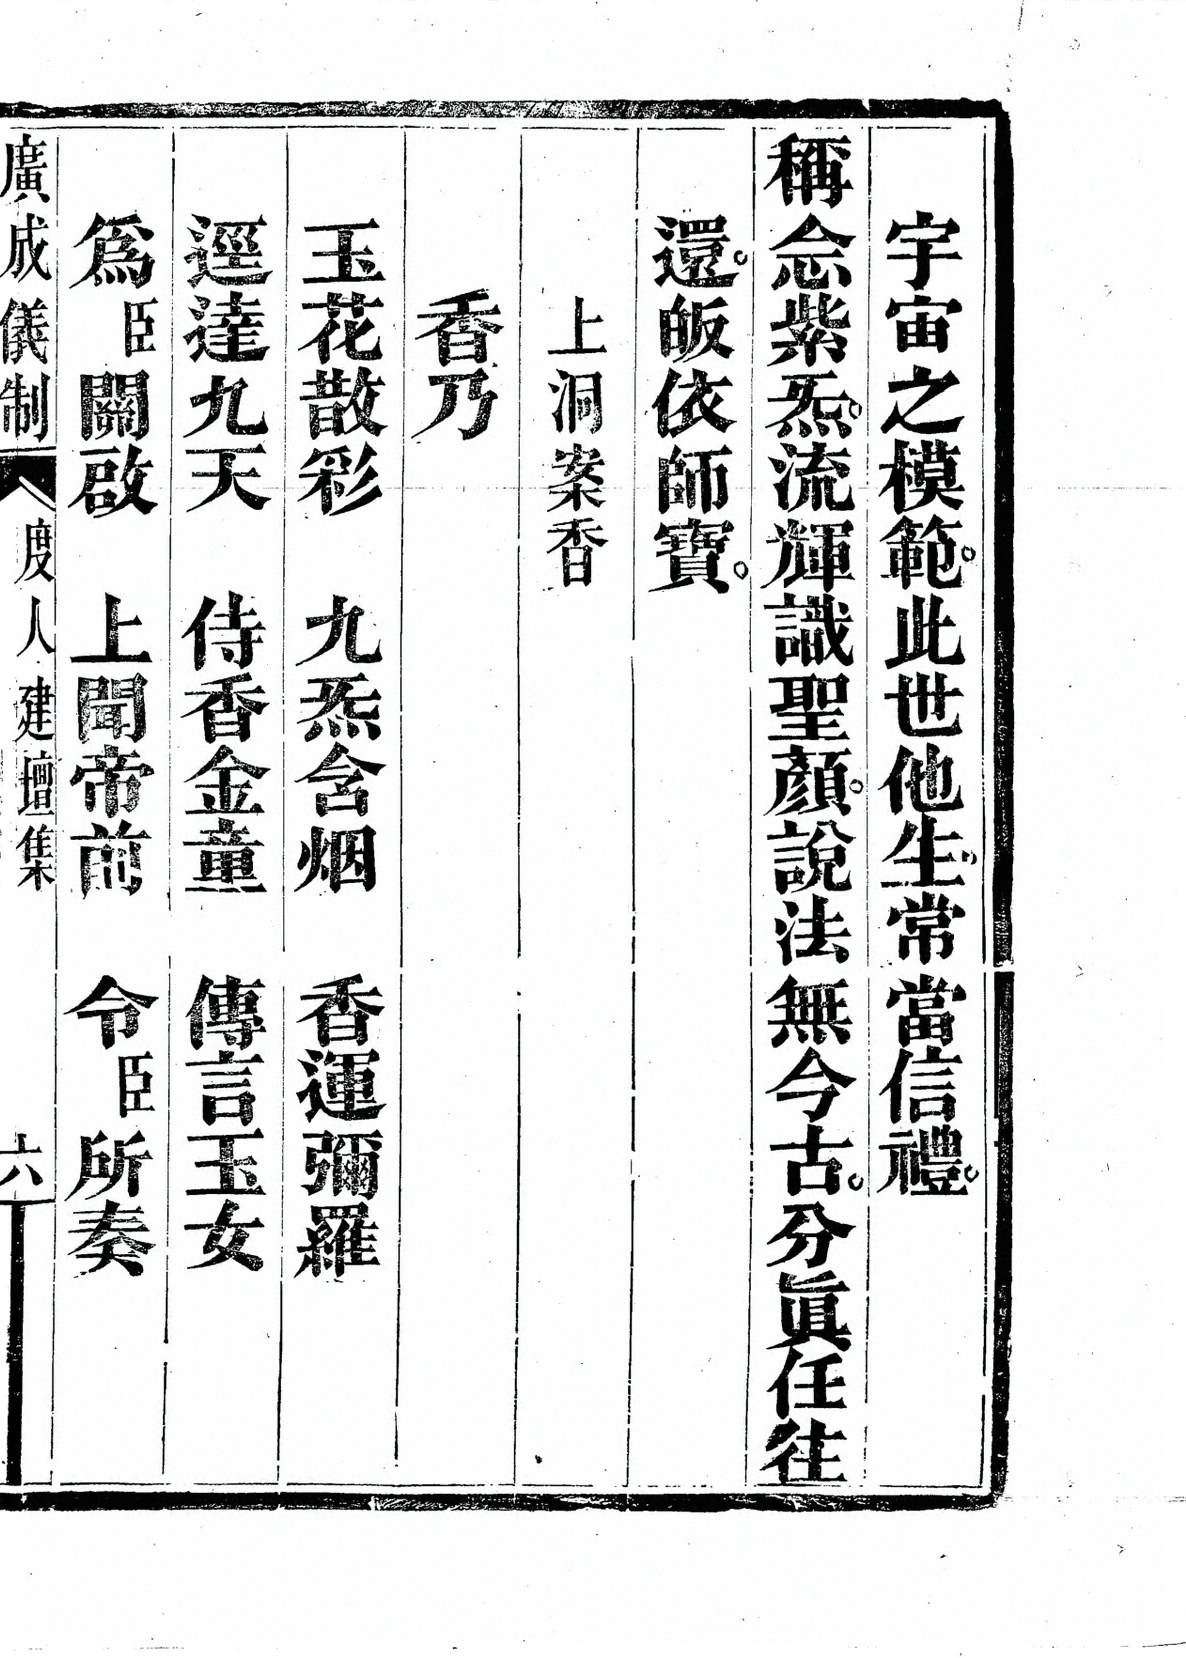 宇宙之模範。此世他生。常當信禮。
稱念紫炁。流輝識聖顏。說法無今古。分眞任往
還。皈依師寶。
上洞案香
香乃
玉花散彩　九炁含烟　香運彌羅
逕達九天　侍香金童　傳言玉女
爲臣關啟　上聞帝前　令臣所奏
廣成儀制　度人建壇集　六